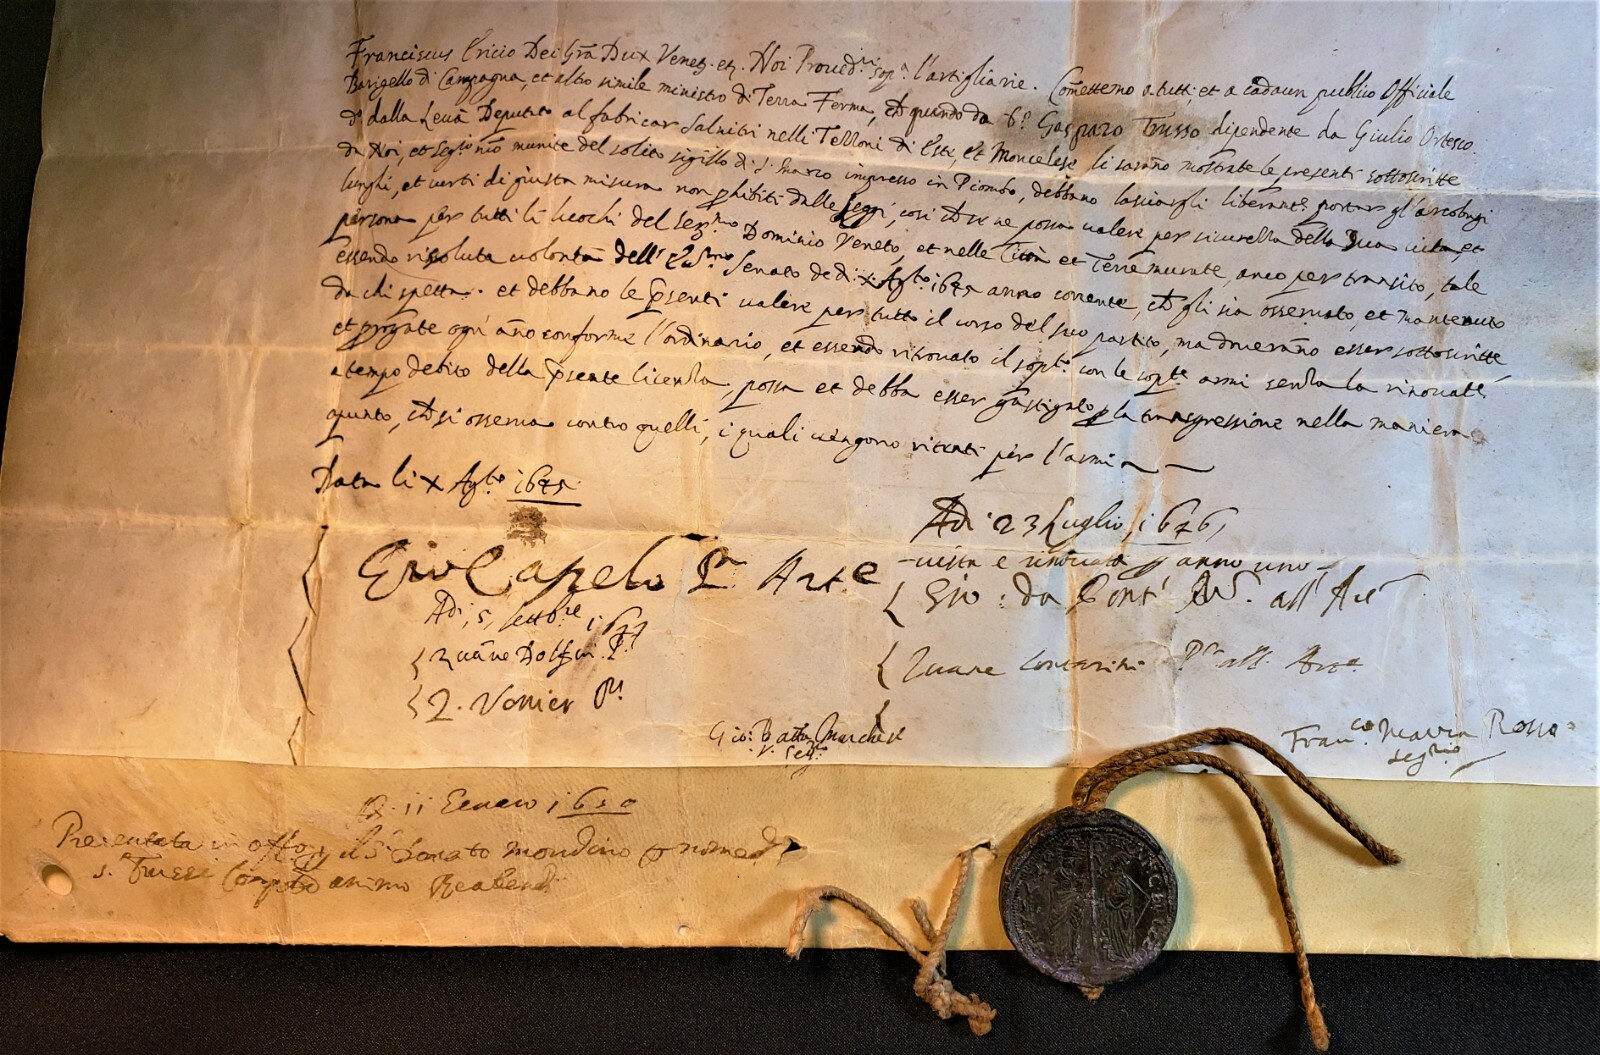 Franciscus Ericio Dei Grã Dux Venet. et. Noi Proved.ri sop.a l'artigliarie. Comettemo a tutti, et a cadaun publico Officiale
Barigello di Campagna, et altro simile ministro di Terra Ferma, ch quando da Gasparo Trusso dipendente da Giulio
dalla Leuã Deputato al fabricar Salnitri nelli Terreni di Este, et Moncelese li sarano mostrate le presenti sottoscritte
da Noi, et munite del solito sigillo di S. Marco impresso in Piombo, debbano lasciargli liberam.te portar gl'arcobugi
lunghi, et curti di giusta misura non phibiti dalle leggi, così ch se ne possa valere per sicurezza della sua vita, et
persona per tutti li luochi del Ser.mo Dominio Veneto, et nelle Città et Terre murate, anco per transito, tale
essendo rissoluta volontà dell' Senato de di x Ag.to 1675 anno corrente, ch gli sia osservato, et mantenuto
da chi spetta. et debbano le psenti valere per tutto il corso del suo partito, ma doverano esser sottoscritte,
et pgate ogn' año conforme l'ordinario, et essendo ritrovato il sop.to con le sop.te armi senza la rinovatè
a tempo debito della psente licenza, possa et debba esser gastigato p la transgressione nella maniera
apunto, ch si osserva contro quelli, i quali vengono ritenti per l'armi
Data li x Ag.to 1675
Gio Capelo P.r Art.e
Adi 5, settb.re 1677
Zuãne Dolfin P.r
Z. Venier P.r
Adi 23 Luglio 1676
vista e rinovata p anno uno
Gio: da Pont' all' Art
Zuane Contarini P.r all. Art.a
Gio: Batta Marchesi
Seg.o
Fran.co Maria Rosso
seg.rio
11 Genaro 1680
Presentata in off.o Donato Mondino p nome d
s. Trusso animo